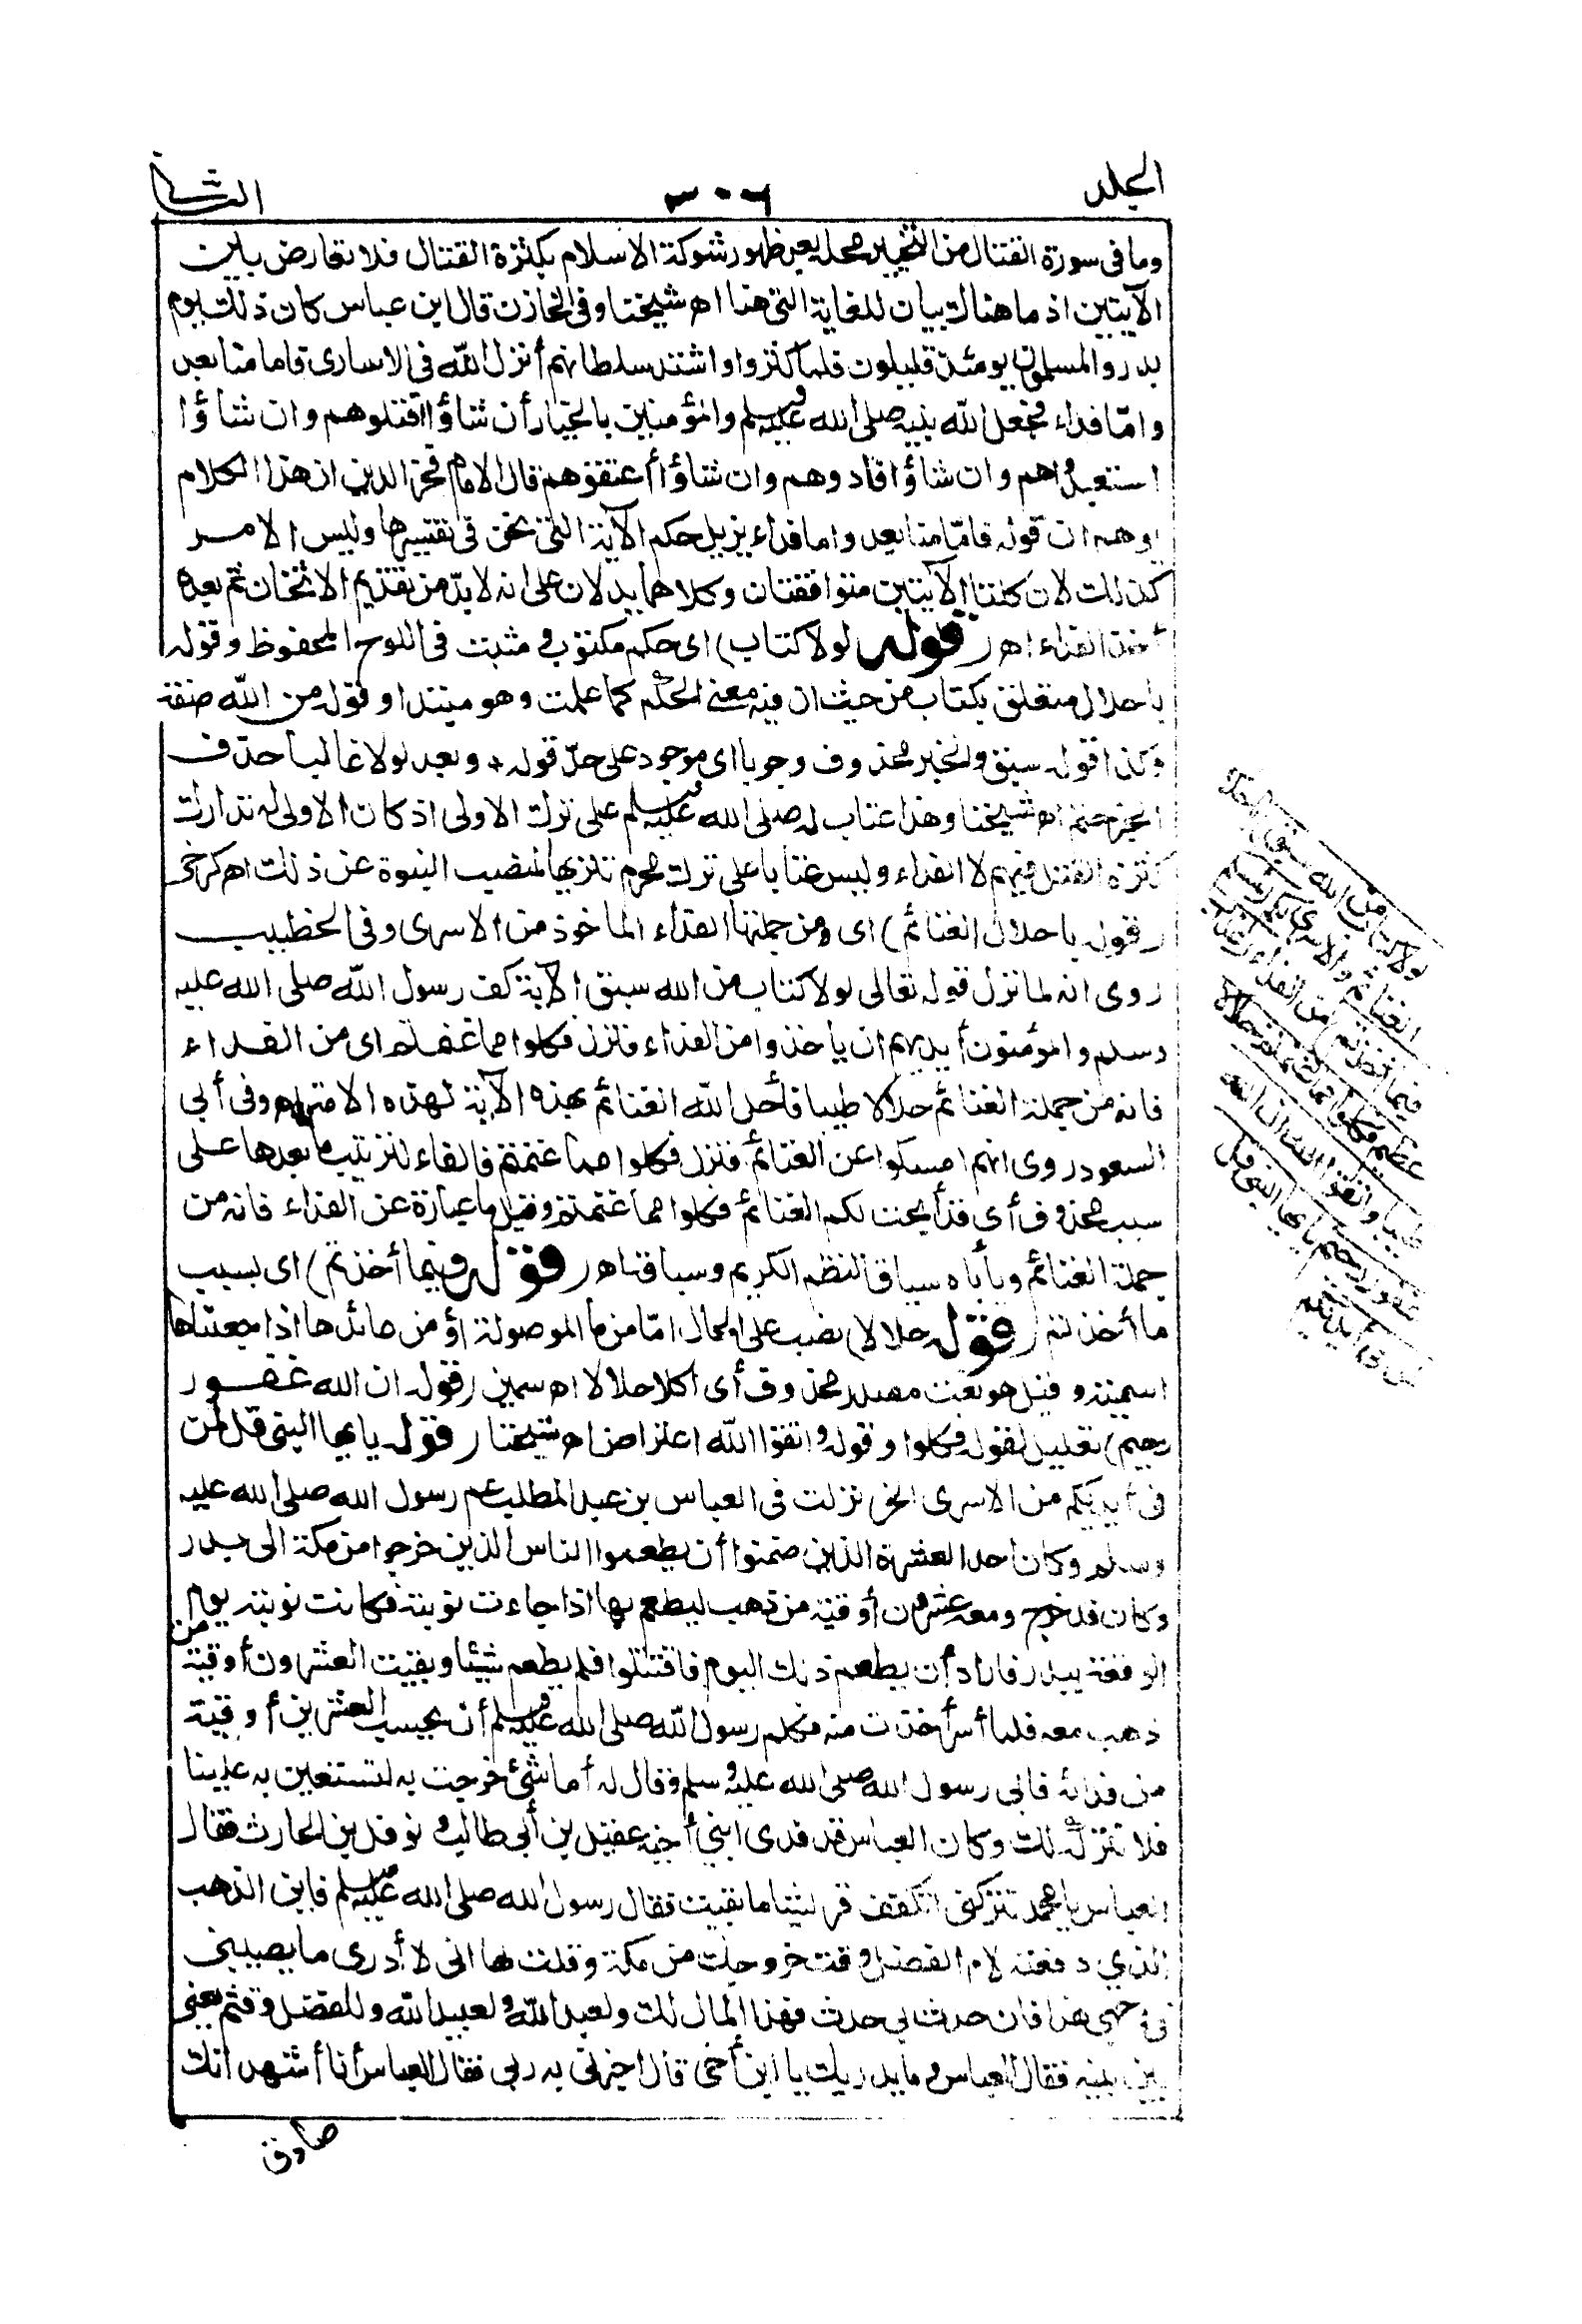 الجلد
٣٠٦
الثانى
وما فى سورة القتال من التخيير محله بعد ظهور شوكة الاسلام بكثرة القتال فلا تعارض بين
الآيتين اذ ما هناك بيان للغاية التى هنا اه شيخنا وفى الخازن قال ابن عباس كان ذلك يوم
بدر والمسلمون يومئذ قليلون فلما كثروا واشتد سلطانهم أنزل الله فى الاسارى فاما منا بعد
وامّا فداء فجعل الله نبيه صلى الله عليه وسلم والمؤمنين بالخيار أن شاؤا قتلوهم وان شاؤا
استعبدوهم وان شاؤا فادوهم وان شاؤا أعتقوهم قال الامام فخر الدين ان هذا الكلام
يوهم ان قوله فامّا منا بعد واما فداء يزيل حكم الآية التى نحن فى تفسيرها وليس الامر
كذلك لان كلتا الآيتين متوافقتان وكلاهما يدلان على انه لا بدّ من تقديم الاثخان ثم بعده
أخذ الفداء اه (قوله لولا كتاب) اى حكم مكتوب ومثبت فى اللوح المحفوظ وقوله
باحلال متعلق بكتاب من حيث ان فيه معنى الحكم كما علمت وهو مبتدا وقوله من الله صفة
وكذا قوله سبق والخبر محذوف وجوبا اى موجود على حدّ قوله + وبعد لولا غالبا حذف
الخبر حتم اه شيخنا وهذا عتاب له صلى الله عليه وسلم على ترك الاولى اذ كان الاولى له تدارك
كثرة القتل فيهم لا الفداء وليس عتابا على ترك محرم تنزيها لمنصب النبوة عن ذلك اه كرخى
(قوله باحلال الغنائم) اى ومن جملتها الفداء الماخوذ من الاسرى وفى الخطيب
روى انه لما نزل قوله تعالى لولا كتاب من الله سبق الآية كف رسول الله صلى الله عليه
وسلم والمؤمنون أيديهم ان ياخذوا من الفداء فنزل فكلوا مما غنمتم اى من الفداء
فانه من جملة الغنائم حلالا طيبا فأحل الله الغنائم بهذه الآية لهذه الامة اه وفى أبى
السعود روى انهم امسكوا عن الغنائم فنزل فكلوا مما غنمتم فالفاء لترتيب ما بعدها على
سبب محذوف أى قد أبحت لكم الغنائم فكلوا مما غنمتم وقيل ما عبارة عن الفداء فانه من
جملة الغنائم ويأباه سياق النظم الكريم وسباقه اه (قوله فيما أخذتم) اى بسبب
ما أخذتم (قوله حلالا) نصب على الحال امّا من ما الموصولة أو من عائدها اذا جعلناها
اسمية وقيل هو نعت مصدر محذوف أى اكلا حلالا اه سمين (قوله ان الله غفور
رحيم) تعليل لقوله فكلوا وقوله واتقوا الله اعتراض اه شيخنا (قوله يا يها النبى قل لمن
فى أيديكم من الاسرى الخ) نزلت فى العباس بن عبد المطلب عم رسول الله صلى الله عليه
وسلم وكان احد العشرة الذين ضمنوا أن يطعموا الناس الذين خرجوا من مكة الى بدر
وكان قد خرج ومعه عشرون أوقية من ذهب ليطعم بها اذا جاءت نوبته فكانت نوبته يوم
الوقعة ببدر فاراد أن يطعم ذلك اليوم فاقتتلوا فلم يطعم شيئا وبقيت العشرون أوقية من
ذهب معه فلما أسر أخذت منه فكلم رسول الله صلى الله عليه وسلم أن يحسب العشرين أوقية
من فدائه فابى رسول الله صلى الله عليه وسلم وقال له أما شئ خرجت به لتستعين به علينا
فلا نتركه لك وكان العباس قد فدى ابنى أخيه عقيل بن أبى طالب ونوفل بن الحارث فقال
العباس يا محمد تتركنى اتكفف قريشا ما بقيت فقال رسول الله صلى الله عليه وسلم فاين الذهب
الذى دفعته لام الفضل وقت خروجك من مكة وقلت لها انى لا أدرى ما يصيبنى
فى وجهى هذا فان حدث بى حدث فهذا المال لك ولعبد الله ولعبيد الله وللفضل وقثم يعنى
بين بنيه فقال العباس وما يدريك يا ابن أخى قال اخبرنى به ربى فقال العباس أنا أشهد انك
صادق
لولا كتاب من الله سبق
الغنائم والاسرى لكم لمسكم
فيما أخذتم من الفداء عذاب
عظيم فكلوا مما غنمتم حلالا
طيبا واتقوا الله ان الله
غفور رحيم يا يها النبى قل
لمن فى أيديكم